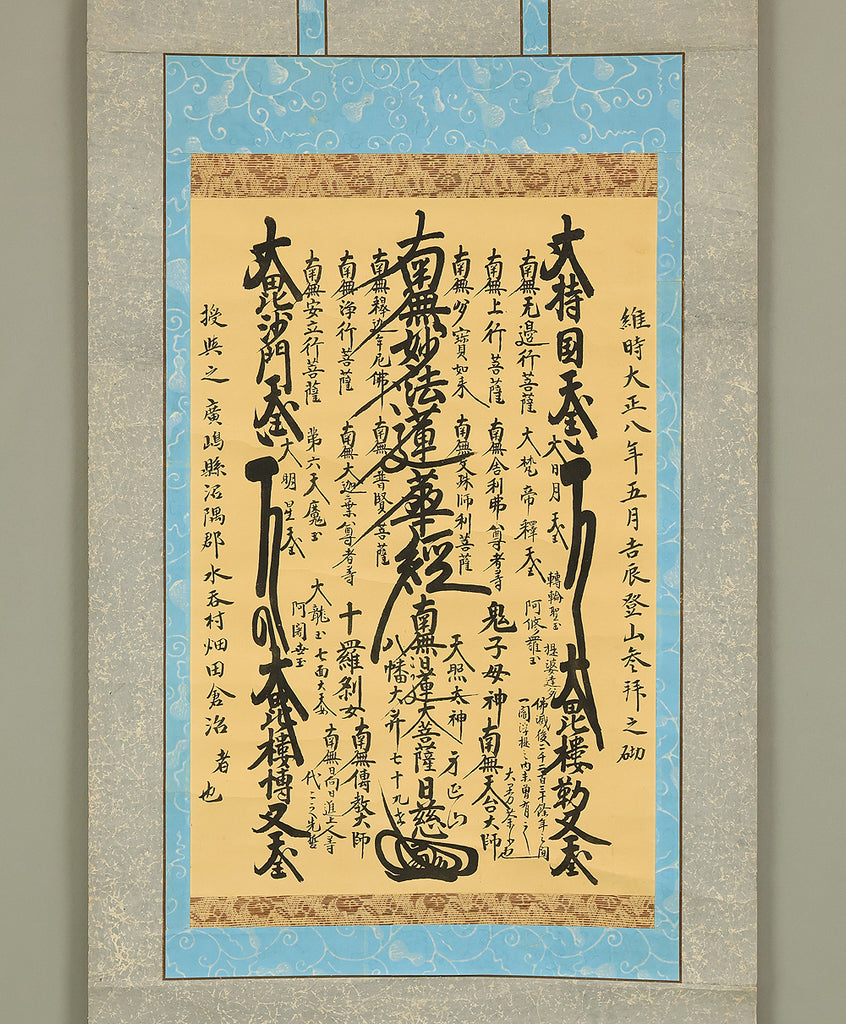 維時大正八年五月吉辰登山参拜之砌
大持国天王
大日月天王
轉輪聖王
提婆達多
大毘樓勒叉天王
佛滅後二千二百三十餘年之間
一閻浮提之内未曾有之
大曼荼羅也
南無无邊行菩薩
大梵帝釋天王
阿修羅王
南無上行菩薩
南無舎利弗尊者等
鬼子母神
南無天台大師
南無多寳如来
南無文珠師利菩薩
天照太神
南無妙法蓮華經
南無日蓮大菩薩
日慈
南無釋迦牟尼佛
南無普賢菩薩
八幡大菩薩
七十九才
南無浄行菩薩
南無大迦葉尊者等
十羅刹女
南無傳教大師
南無安立行菩薩
第六天魔王
大龍王
七面大天女
南無日向日進上人等
代々之先哲
大明星天王
阿闍世王
大毘沙門天王
大毘樓博叉天王
授與之 廣嶋縣沼隅郡水呑村畑田倉治者也